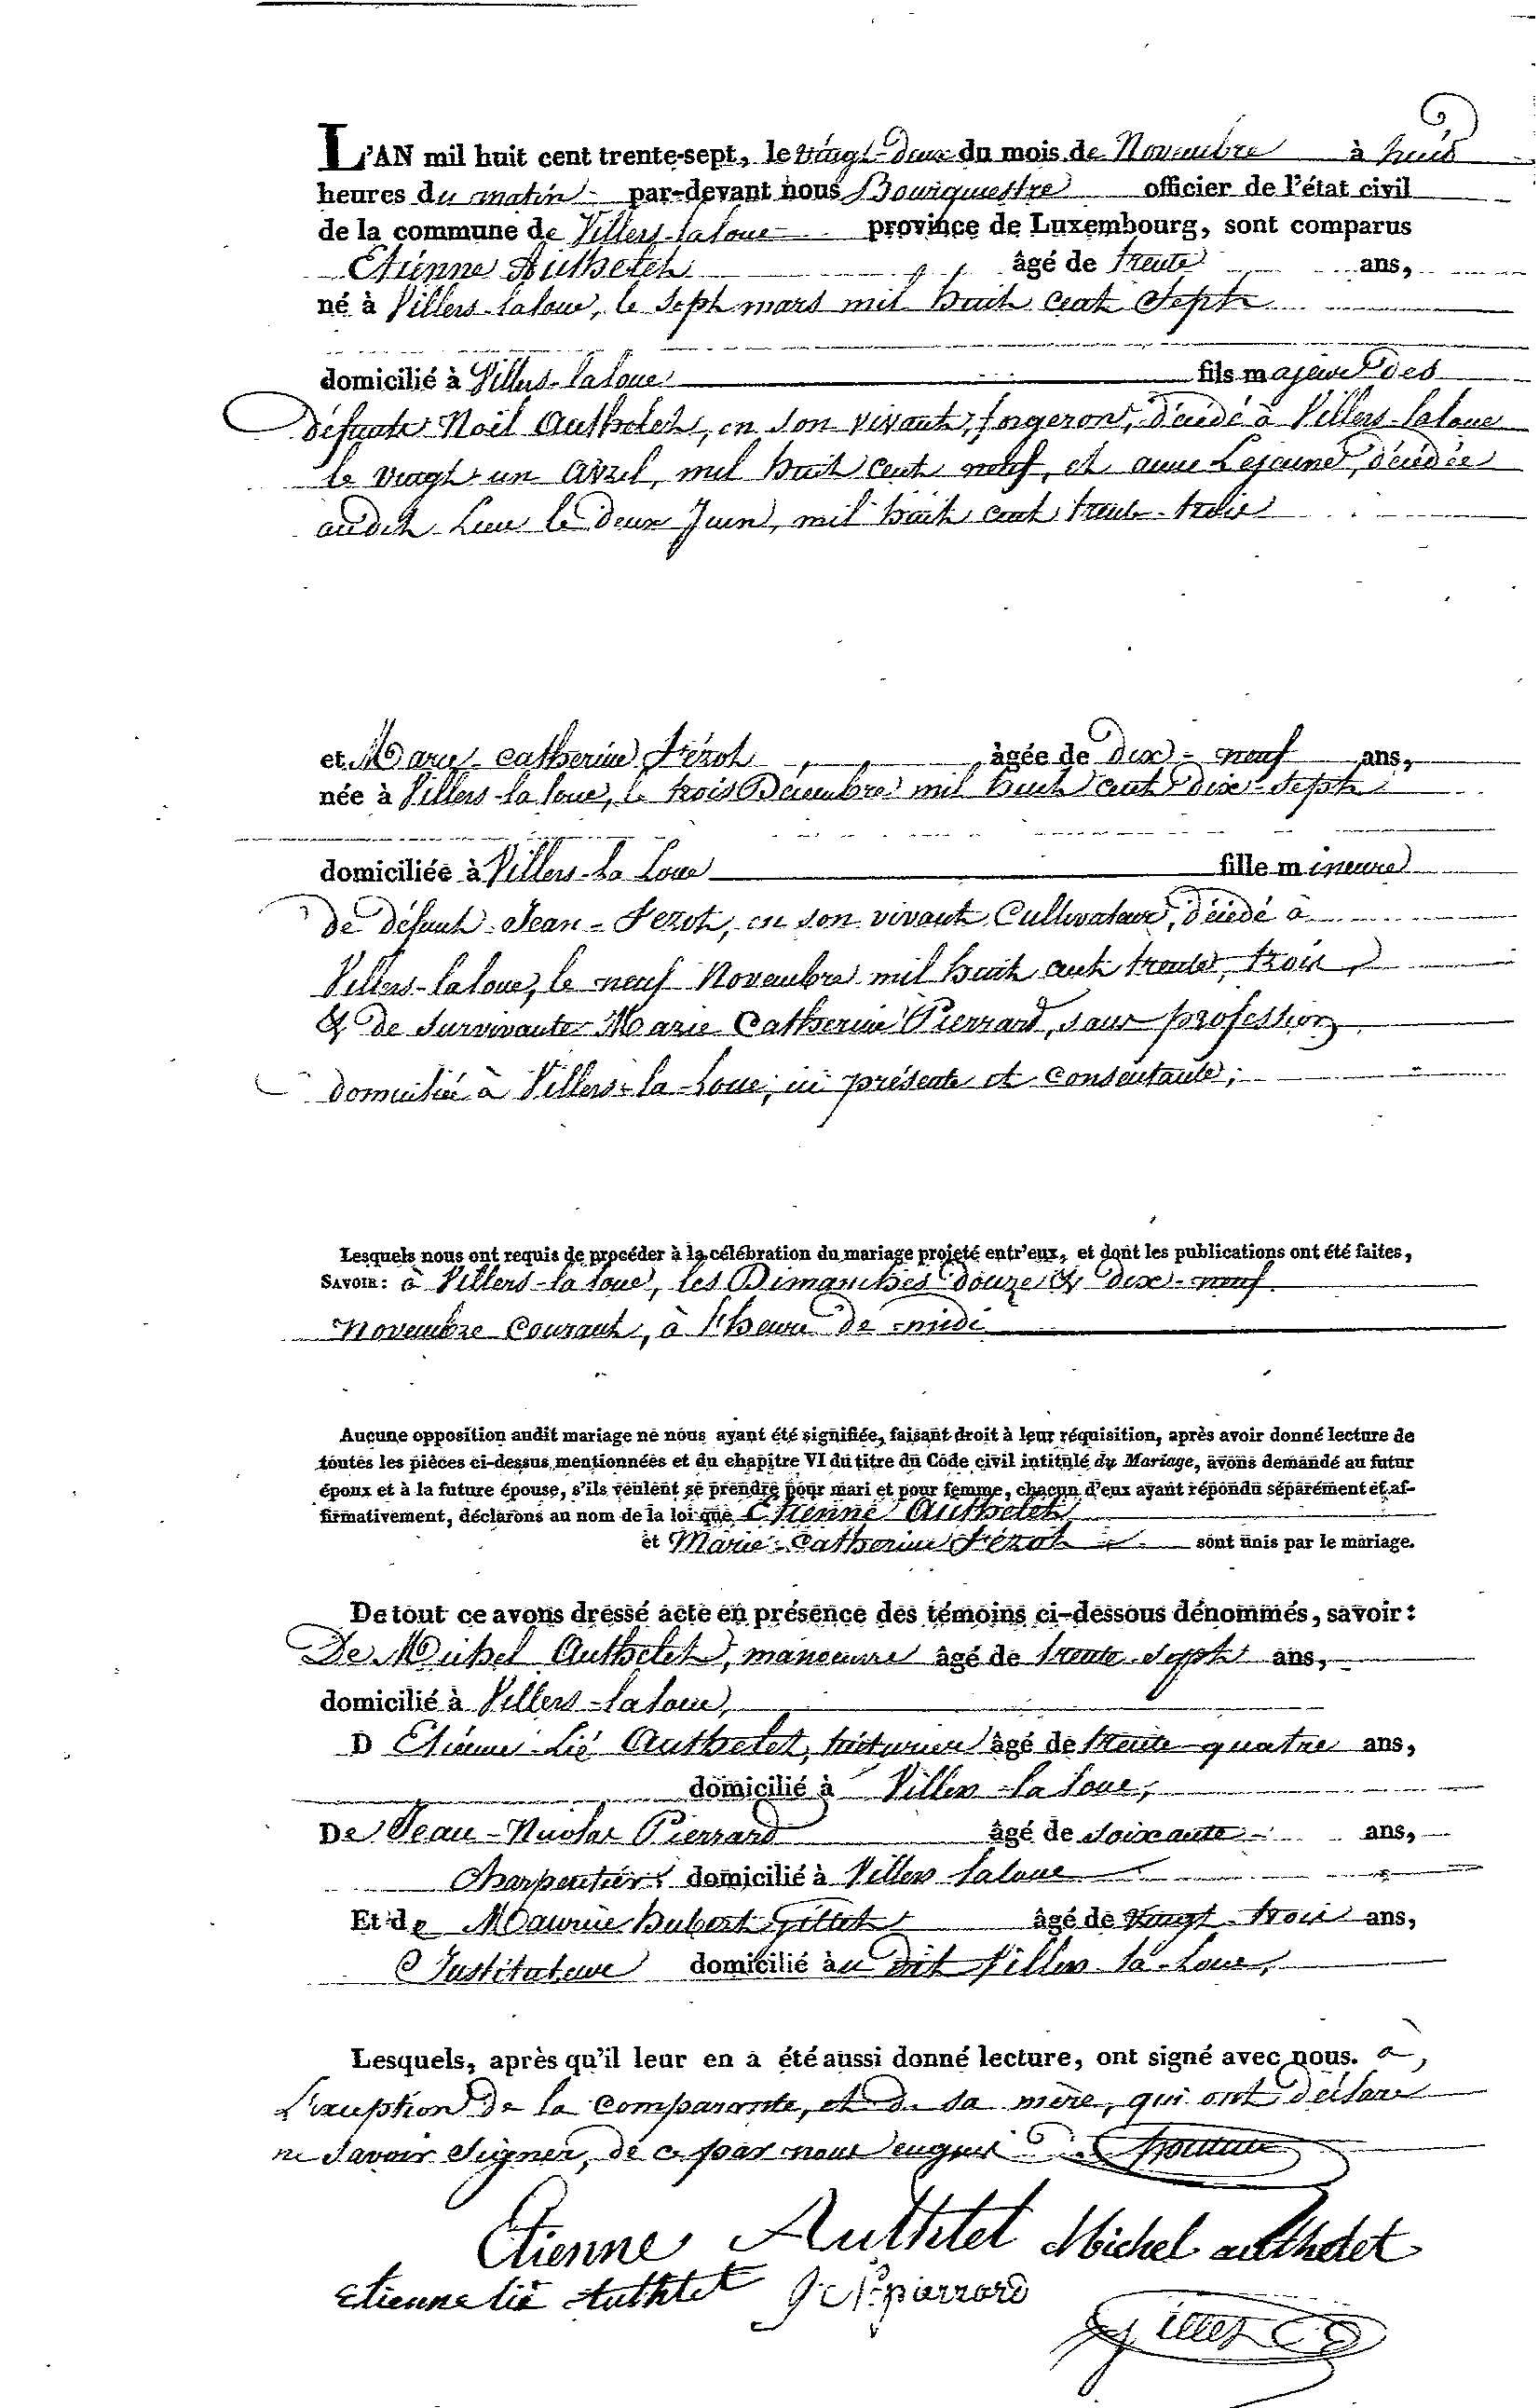 L'AN mil huit cent trente-sept, le vingt-deux du mois de Novembre à huit
heures du matin par-devant nous Bourguestre officier de l'état civil
de la commune de Villers-la loue province de Luxembourg, sont comparus
Etienne Authelet âgé de trente ans,
né à Villers-la loue, le sept mars mil huit cent Sept
domicilié à Villers-la loue fils majeur des
défunts Noël Authelet, en son vivant, forgeron, décédé à Villers-la loue
le vingt-un avril, mil huit cent neuf, et anne Lejeune, décédée
audit Lieu le deux Juin, mil huit cent trente-trois
et Marie-catherine Fézot âgée de dix-neuf ans,
née à Villers-la loue, le trois Décembre mil huit cent dix-sept
domiciliée à Villers-la Loue fille mineure
de défunt Jean-Fezot, en son vivant Cultivateur, décédé à
Villers-la loue, le neuf Novembre mil huit cent trente, trois,
& de Survivante Marie Catherine Pierrard, sans profession
domiciliée à Villers-la-Loue, ici présente et consentante;
Lesquels nous ont requis de procéder à la célébration du mariage projeté entr'eux, et dont les publications ont été faites,
SAVOIR: à Villers-la loue, les Dimanches douze & dix-neuf
Novembre Courant, à l'heure de midi
Aucune opposition audit mariage ne nous ayant été signifiée, faisant droit à leur réquisition, après avoir donné lecture de
toutes les pièces ci-dessus mentionnées et du chapitre VI du titre du Code civil intitulé du Mariage, avons demandé au futur
époux et à la future épouse, s'ils veulent se prendre pour mari et pour femme, chacun d'eux ayant répondu séparément et af-
firmativement, déclarons au nom de la loi que Etienne Authelet
et Marie-Catherine Fézot sont unis par le mariage.
De tout ce avons dressé acte en présence des témoins ci-dessous dénommés, savoir:
De Michel Authelet, manoeuvre âgé de trente-sept ans,
domicilié à Villers-la loue,
D Etienne Lié Authelet, âgé de trente quatre ans,
domicilié à Villers-la loue,
De Jean-Nicolas Pierrard âgé de soixante ans,
Charpentier domicilié à Villers la loue
Et de Maurice hubert Gillet âgé de vingt-trois ans,
Instituteur domicilié àu dit Villers-la-Loue,
Lesquels, après qu'il leur en a été aussi donné lecture, ont signé avec nous. à,
L'exception de la comparante, et de sa mère, qui ont déclaré
ne savoir signer, de ce par nous enquis
Etienne Authlet Michel authelet
etienne lié Authlet J N pierrard
Gillet